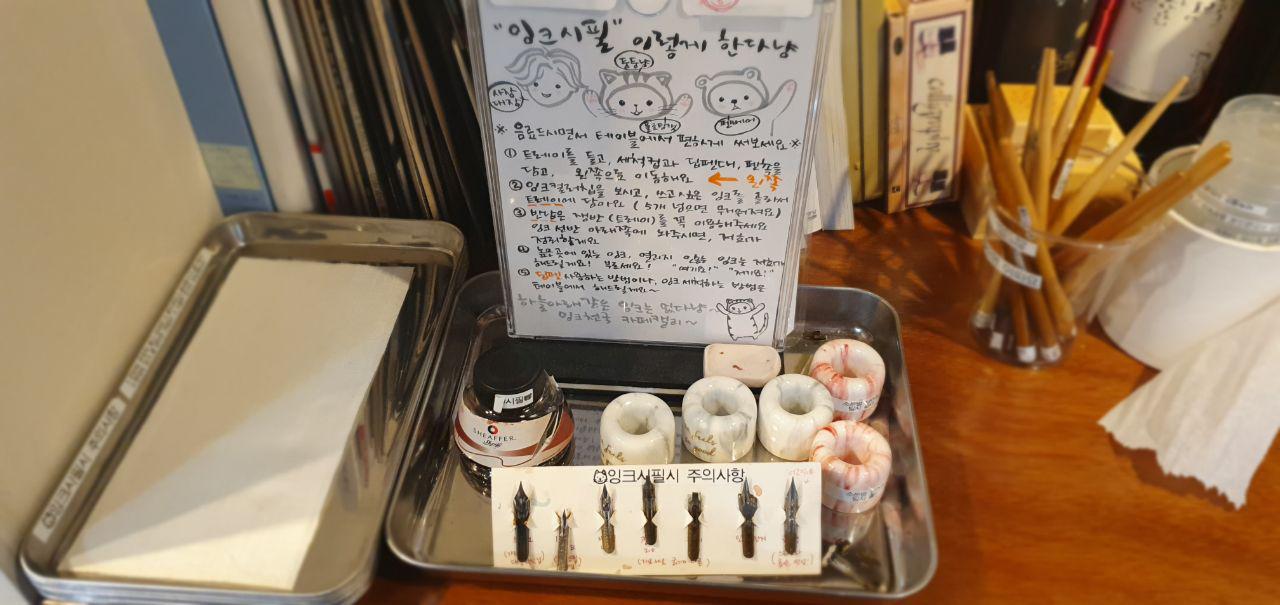 "잉크시필" 이렇게 한다냥
사장
대장
둥둥냥
펜베어
※ 음료드시면서 테이블에서 편하게 써보세요 ※
① 트레이를 들고, 세척컵과 딥펜대, 펜촉을
담고, 왼쪽으로 이동해요 ← 왼쪽
② 잉크컬러칩을 보시고, 쓰고 싶은 잉크를 골라서
트레이에 담아요 ( 5개 넘으면 무거워져요)
③ 반납은 쟁반 (트레이)를 꼭 이용해주세요
잉크 선반 아래쪽에 놔주시면, 저희가
정리할게요
④ 높은곳에 있는 잉크, 열리지 않는 잉크는 저희가
해드릴게요! 부르세요! "여기요!" "저기요!"
⑤ 딥펜 사용하는 방법이나, 잉크세척하는 방법은
테이블에서 해드릴게요~
하늘아래같은 잉크는 없다냥~
잉크천국 카페캘리~
calligraphy
시필
SHEAFFER
잉크시필시 주의사항
잉크시필시 주의사항